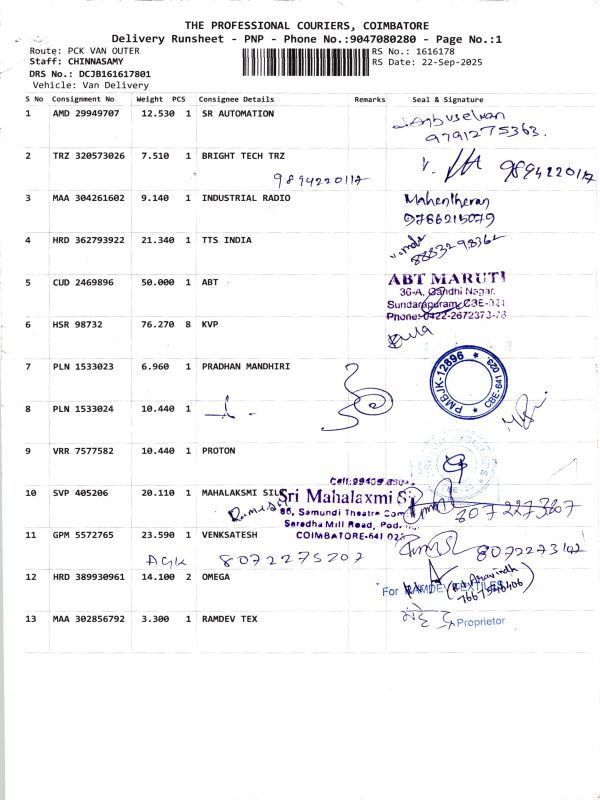 THE PROFESSIONAL COURIERS, COIMBATORE
Delivery Runsheet - PNP - Phone No.:9047080280 - Page No.:1
Route: PCK VAN OUTER
RS No.: 1616178
Staff: CHINNASAMY
RS Date: 22-Sep-2025
DRS No.: DCJB161617801
Vehicle: Van Delivery
S No Consignment No Weight PCS Consignee Details Remarks Seal & Signature
1 AMD 29949707 12.530 1 SR AUTOMATION
9791275363.
2 TRZ 320573026 7.510 1 BRIGHT TECH TRZ
9894220117 9894220117
3 MAA 304261602 9.140 1 INDUSTRIAL RADIO
9786215079
4 HRD 362793922 21.340 1 TTS INDIA
8883298362
5 CUD 2469896 50.000 1 ABT
ABT MARUTI
36-A, Gandhi Nagar,
Sundarapuram, CBE-
Phone: 0422-2672373-76
6 HSR 98732 76.270 8 KVP
7 PLN 1533023 6.960 1 PRADHAN MANDHIRI
PMBJK-12896 * CBE-641 023. *
8 PLN 1533024 10.440 1
9 VRR 7577582 10.440 1 PROTON
10 SVP 405206 20.110 1 MAHALAKSMI
Sri Mahalaxmi
86, Samundi Theatre
Saradha Mill Road,
COIMBATORE-641 023
11 GPM 5572765 23.590 1 VENKSATESH
8072275207
12 HRD 389930961 14.100 2 OMEGA
For RAMDEV TEXTILES
13 MAA 302856792 3.300 1 RAMDEV TEX
Proprietor